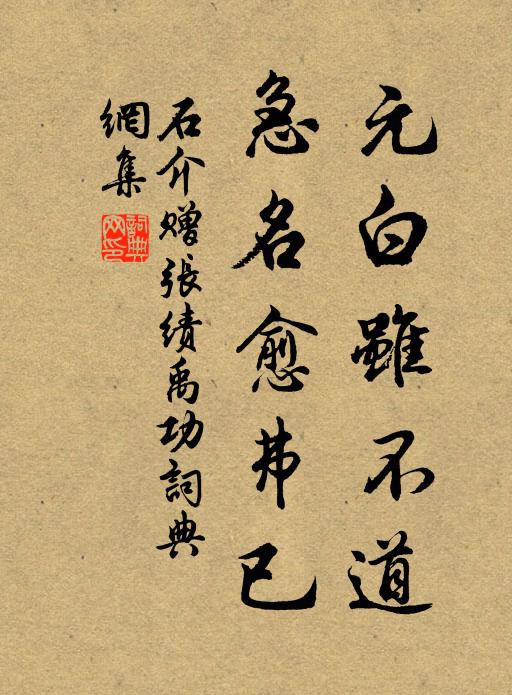 元白雖不道
急名愈弗已
石介贈張績禹功詞典
網集
詞典网印